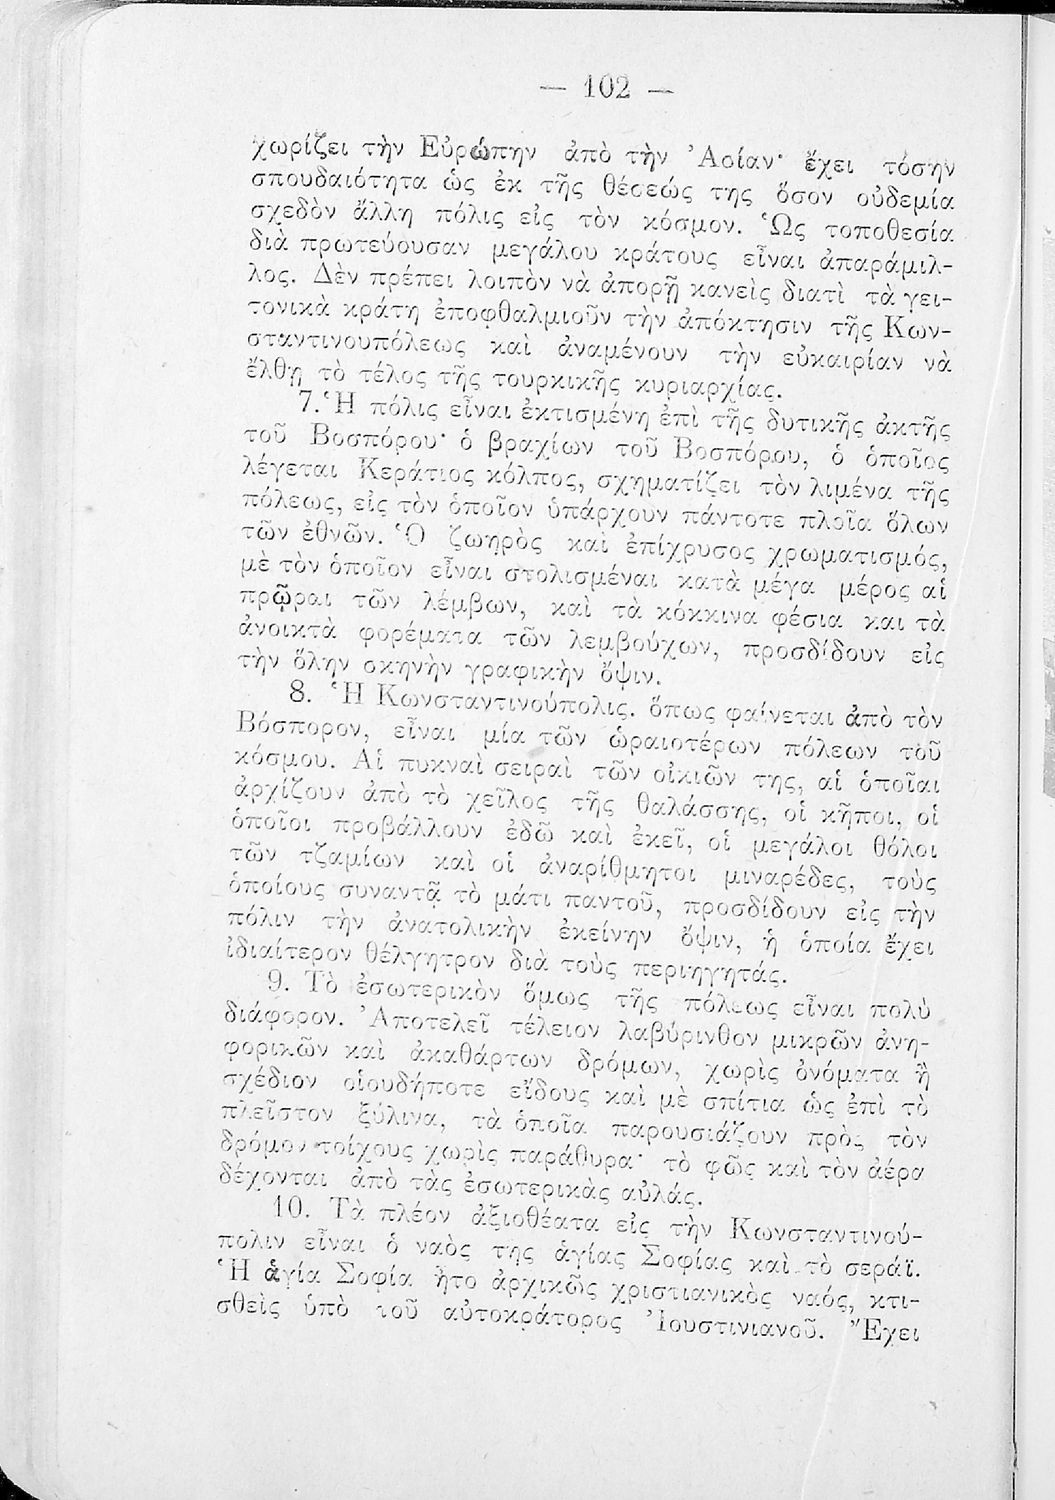 — 102 —
χωρίζει τὴν Εὐρώπην ἀπὸ τὴν Ἀσίαν· ἔχει τόσην
σπουδαιότητα ὡς ἐκ τῆς θέσεώς της ὅσον οὐδεμία
σχεδὸν ἄλλη πόλις εἰς τὸν κόσμον. Ὡς τοποθεσία
διὰ πρωτεύουσαν μεγάλου κράτους εἶναι ἀπαράμιλ-
λος. Δὲν πρέπει λοιπὸν νὰ ἀπορῇ κανεὶς διατὶ τὰ γει-
τονικὰ κράτη ἐποφθαλμιοῦν τὴν ἀπόκτησιν τῆς Κων-
σταντινουπόλεως καὶ ἀναμένουν τὴν εὐκαιρίαν νὰ
ἔλθῃ τὸ τέλος τῆς τουρκικῆς κυριαρχίας.
7. Ἡ πόλις εἶναι ἐκτισμένη ἐπὶ τῆς δυτικῆς ἀκτῆς
τοῦ Βοσπόρου· ὁ βραχίων τοῦ Βοσπόρου, ὁ ὁποῖος
λέγεται Κεράτιος κόλπος, σχηματίζει τὸν λιμένα τῆς
πόλεως, εἰς τὸν ὁποῖον ὑπάρχουν πάντοτε πλοῖα ὅλων
τῶν ἐθνῶν. Ὁ ζωηρὸς καὶ ἐπίχρυσος χρωματισμός,
μὲ τὸν ὁποῖον εἶναι στολισμέναι κατὰ μέγα μέρος αἱ
πρῷραι τῶν λέμβων, καὶ τὰ κόκκινα φέσια και τὰ
ἀνοικτὰ φορέματα τῶν λεμβούχων, προσδίδουν εἰς
τὴν ὅλην σκηνὴν γραφικὴν ὄψιν.
8. Ἡ Κωνσταντινούπολις. ὅπως φαίνεται ἀπὸ τὸν
Βόσπορον, εἶναι μία τῶν ὡραιοτέρων πόλεων τοῦ
κόσμου. Αἱ πυκναὶ σειραὶ τῶν οἰκιῶν της, αἱ ὁποῖαι
ἀρχίζουν ἀπὸ τὸ χεῖλος τῆς θαλάσσης, οἱ κῆποι, οἱ
ὁποῖοι προβάλλουν ἐδῶ καὶ ἐκεῖ, οἱ μεγάλοι θόλοι
τῶν τζαμίων καὶ οἱ ἀναρίθμητοι μιναρέδες, τοὺς
ὁποίους συναντᾷ τὸ μάτι παντοῦ, προσδίδουν εἰς τὴν
πόλιν τὴν ἀνατολικὴν ἐκείνην ὄψιν, ἡ ὁποία ἔχει
ἰδιαίτερον θέλγητρον διὰ τοὺς περιηγητάς.
9. Τὸ ἐσωτερικὸν ὅμως τῆς πόλεως εἶναι πολὺ
διάφορον. Ἀποτελεῖ τέλειον λαβύρινθον μικρῶν ἀνη-
φορικῶν καὶ ἀκαθάρτων δρόμων, χωρὶς ὀνόματα ἢ
σχέδιον οἱουδήποτε εἴδους καὶ μὲ σπίτια ὡς ἐπὶ τὸ
πλεῖστον ξύλινα, τὰ ὁποῖα παρουσιάζουν πρὸς τὸν
δρόμον τοίχους χωρὶς παράθυρα· τὸ φῶς καὶ τὸν ἀέρα
δέχονται ἀπὸ τὰς ἐσωτερικὰς αὐλάς.
10. Τὰ πλέον ἀξιοθέατα εἰς τὴν Κωνσταντινού-
πολιν εἶναι ὁ ναὸς της ἁγίας Σοφίας καὶ τὸ σεράϊ.
Ἡ ἁγία Σοφία ἦτο ἀρχικῶς χριστιανικὸς ναός, κτι-
σθεὶς ὑπὸ τοῦ αὐτοκράτορος Ἰουστινιανοῦ. Ἔχει